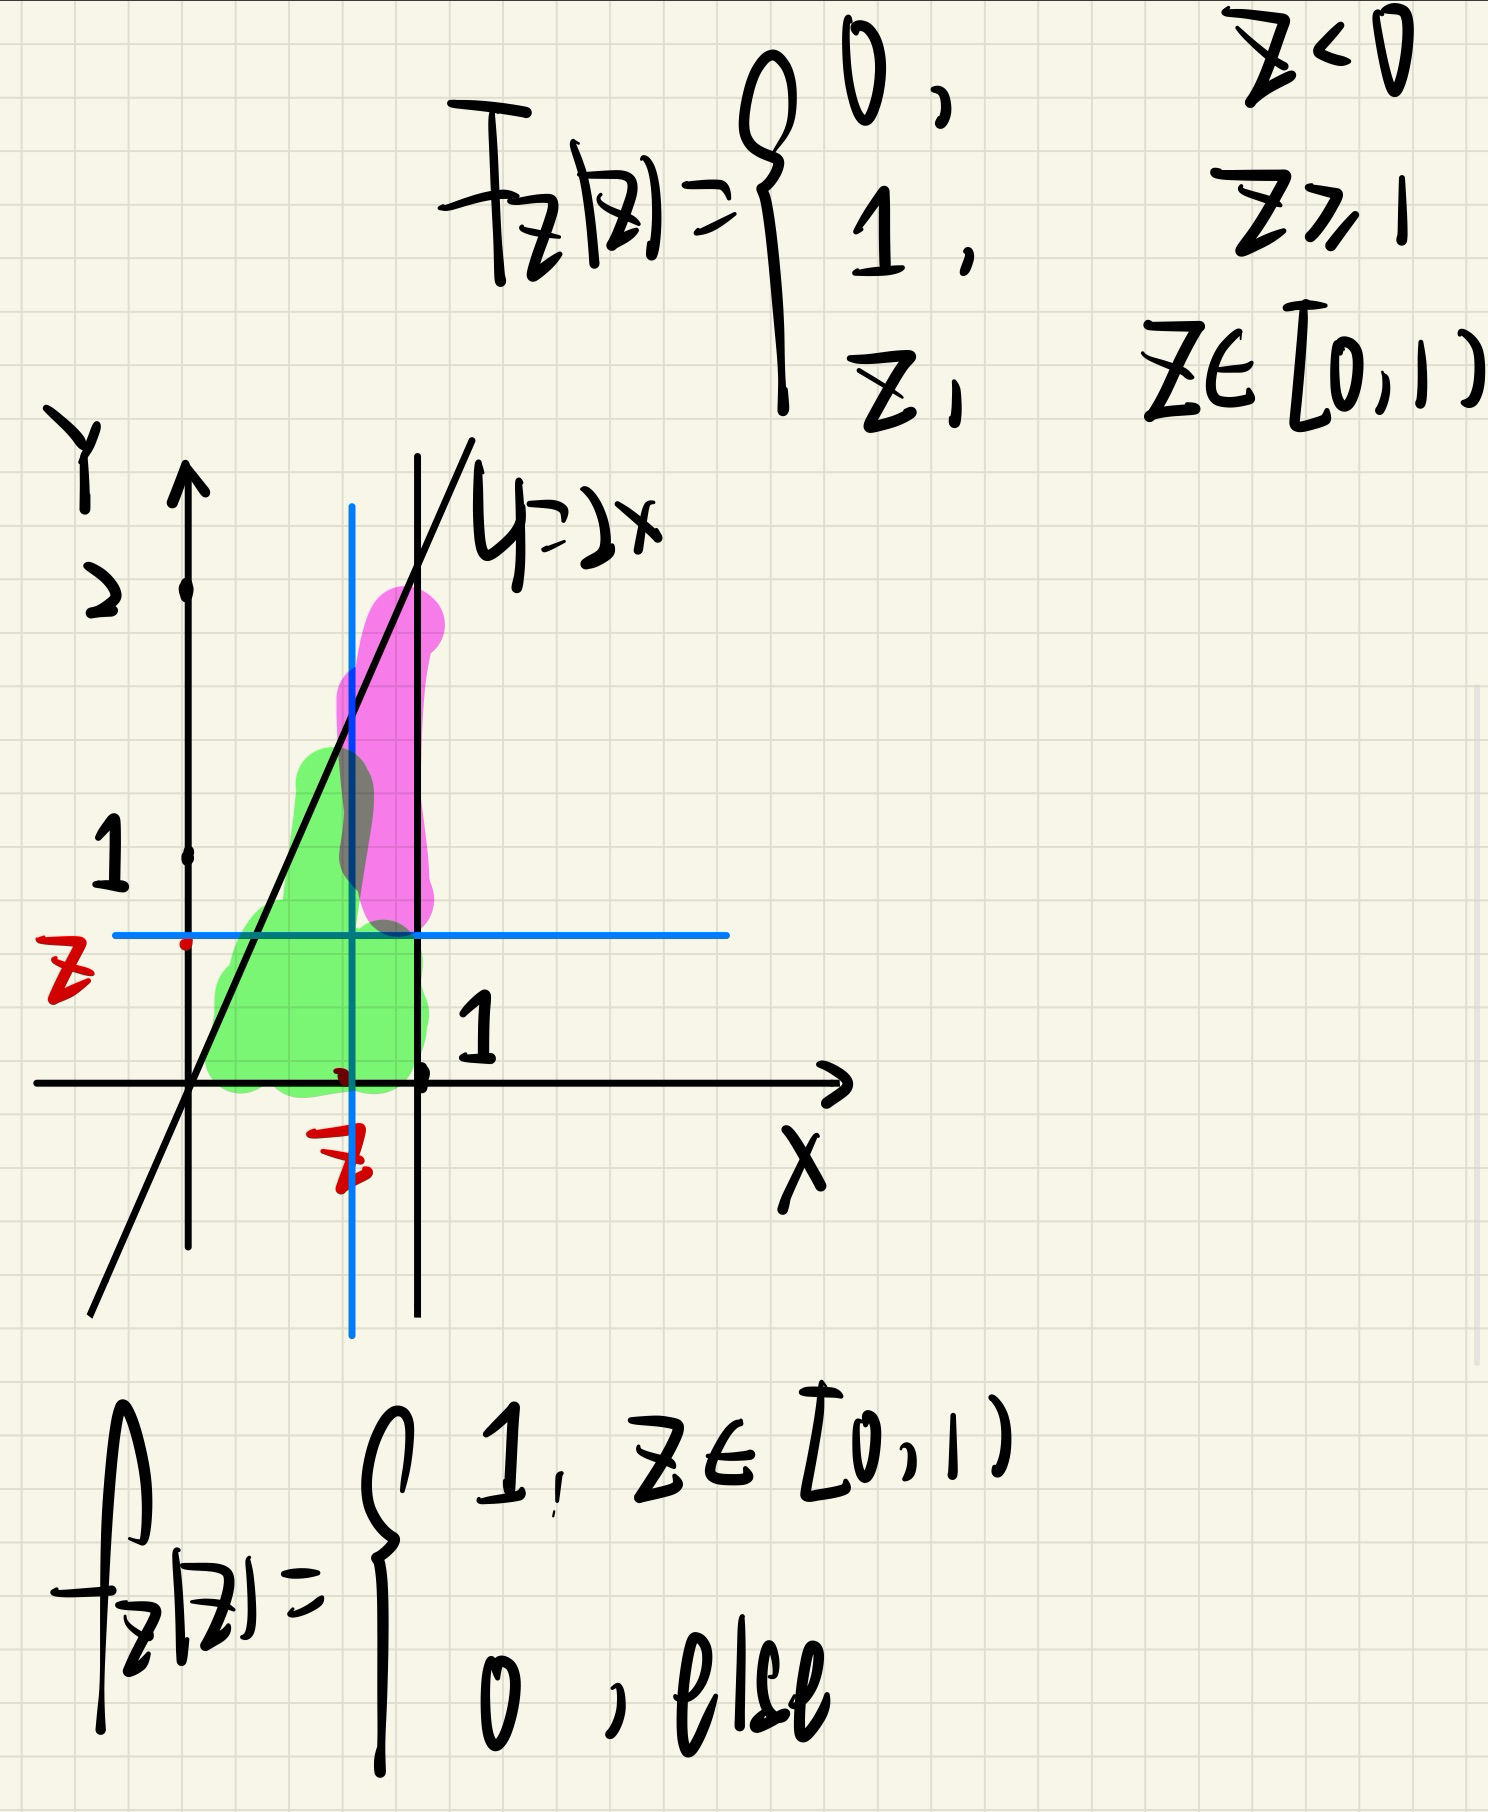 F_Z(z) = { 0, z < 0
1, z ⩾ 1
z, z ∈ [0,1)
Y
y=2x
2
1
z
1
z
X
f_Z(z) = { 1, z ∈ [0,1)
0, else